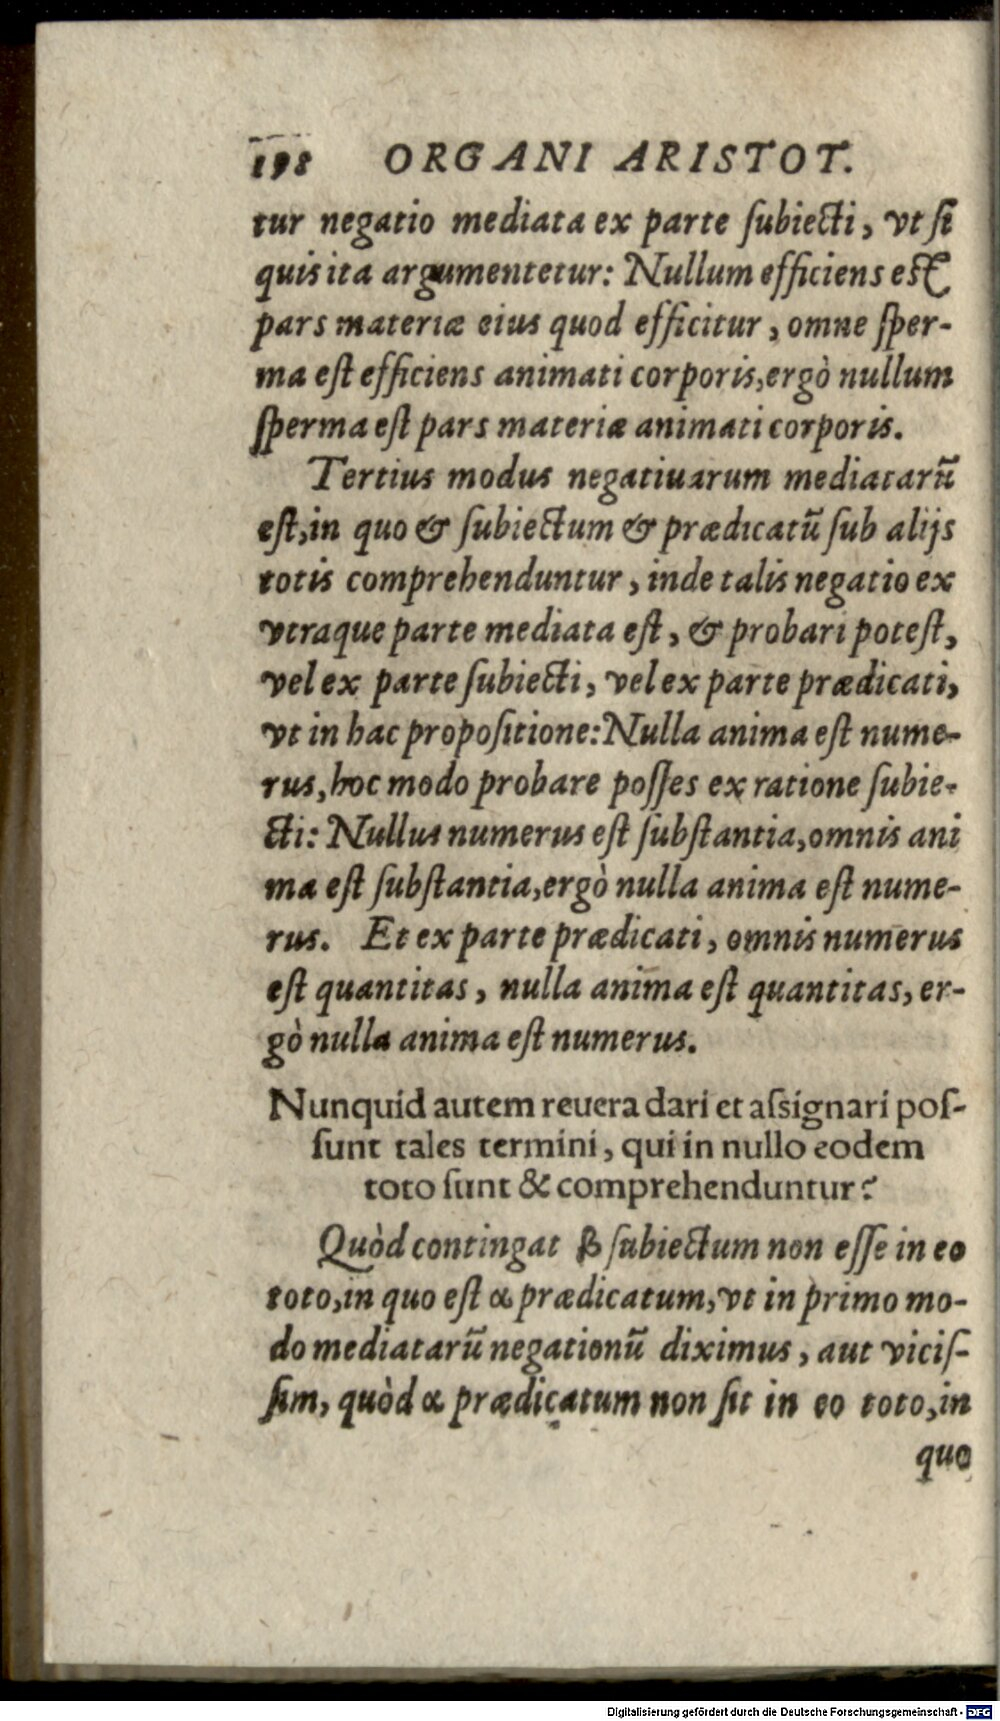 198 ORGANI ARISTOT.
tur negatio mediata ex parte ſubiecti, vt ſi
quis ita argumentetur: Nullum efficiens eſt
pars materiæ eius quod efficitur, omne ſper-
ma eſt efficiens animati corporis, ergò nullum
ſperma eſt pars materiæ animati corporis.
Tertius modus negatiuarum mediatarũ
eſt, in quo & ſubiectum & prædicatũ ſub alijs
totis comprehenduntur, inde talis negatio ex
vtraque parte mediata eſt, & probari poteſt,
vel ex parte ſubiecti, vel ex parte prædicati,
vt in hac propoſitione: Nulla anima eſt nume-
rus, hoc modo probare poſſes ex ratione ſubie-
cti: Nullus numerus eſt ſubſtantia, omnis ani
ma eſt ſubſtantia, ergò nulla anima eſt nume-
rus. Et ex parte prædicati, omnis numerus
eſt quantitas, nulla anima eſt quantitas, er-
gò nulla anima eſt numerus.
Nunquid autem reuera dari et aſsignari poſ-
ſunt tales termini, qui in nullo eodem
toto ſunt & comprehenduntur?
Quòd contingat β ſubiectum non eſſe in eo
toto, in quo eſt α prædicatum, vt in primo mo-
do mediatarũ negationũ diximus, aut viciſ-
ſim, quòd α prædicatum non ſit in eo toto, in
quo
Digitalisierung gefördert durch die Deutsche Forschungsgemeinschaft - DFG